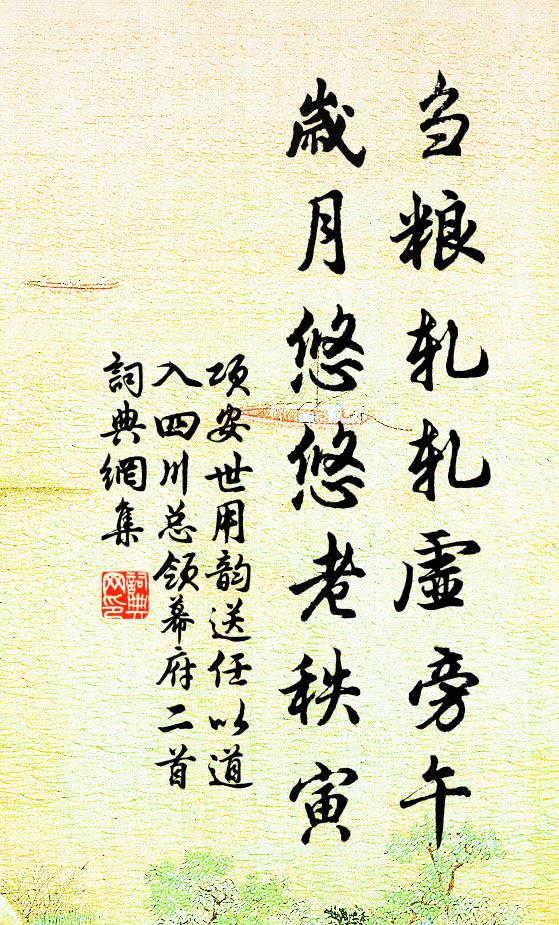 刍粮轧轧虚旁午
歲月悠悠老秩寅
项安世用韵送任以道
入四川总领幕府二首
詞典網集
詞典网印